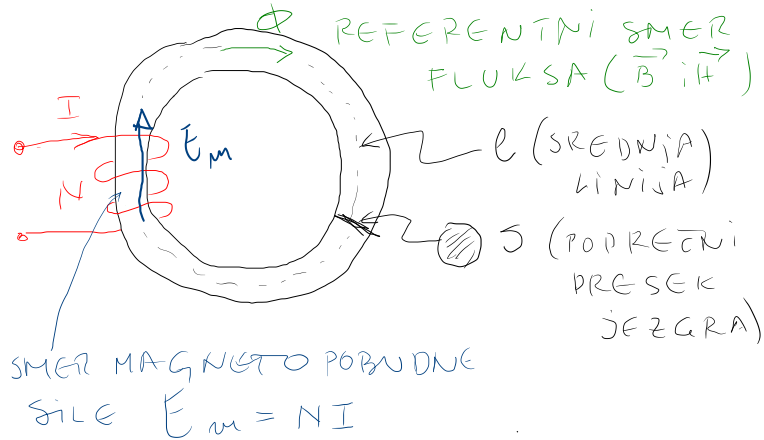 Φ REFERENTNI SMER
FLUKSA (B i H)
I
Em
N
l (SREDNJA
LINIJA)
S (POPREČNI
PRESEK
JEZGRA)
SMER MAGNETO POBUDNE
SILE Em = NI